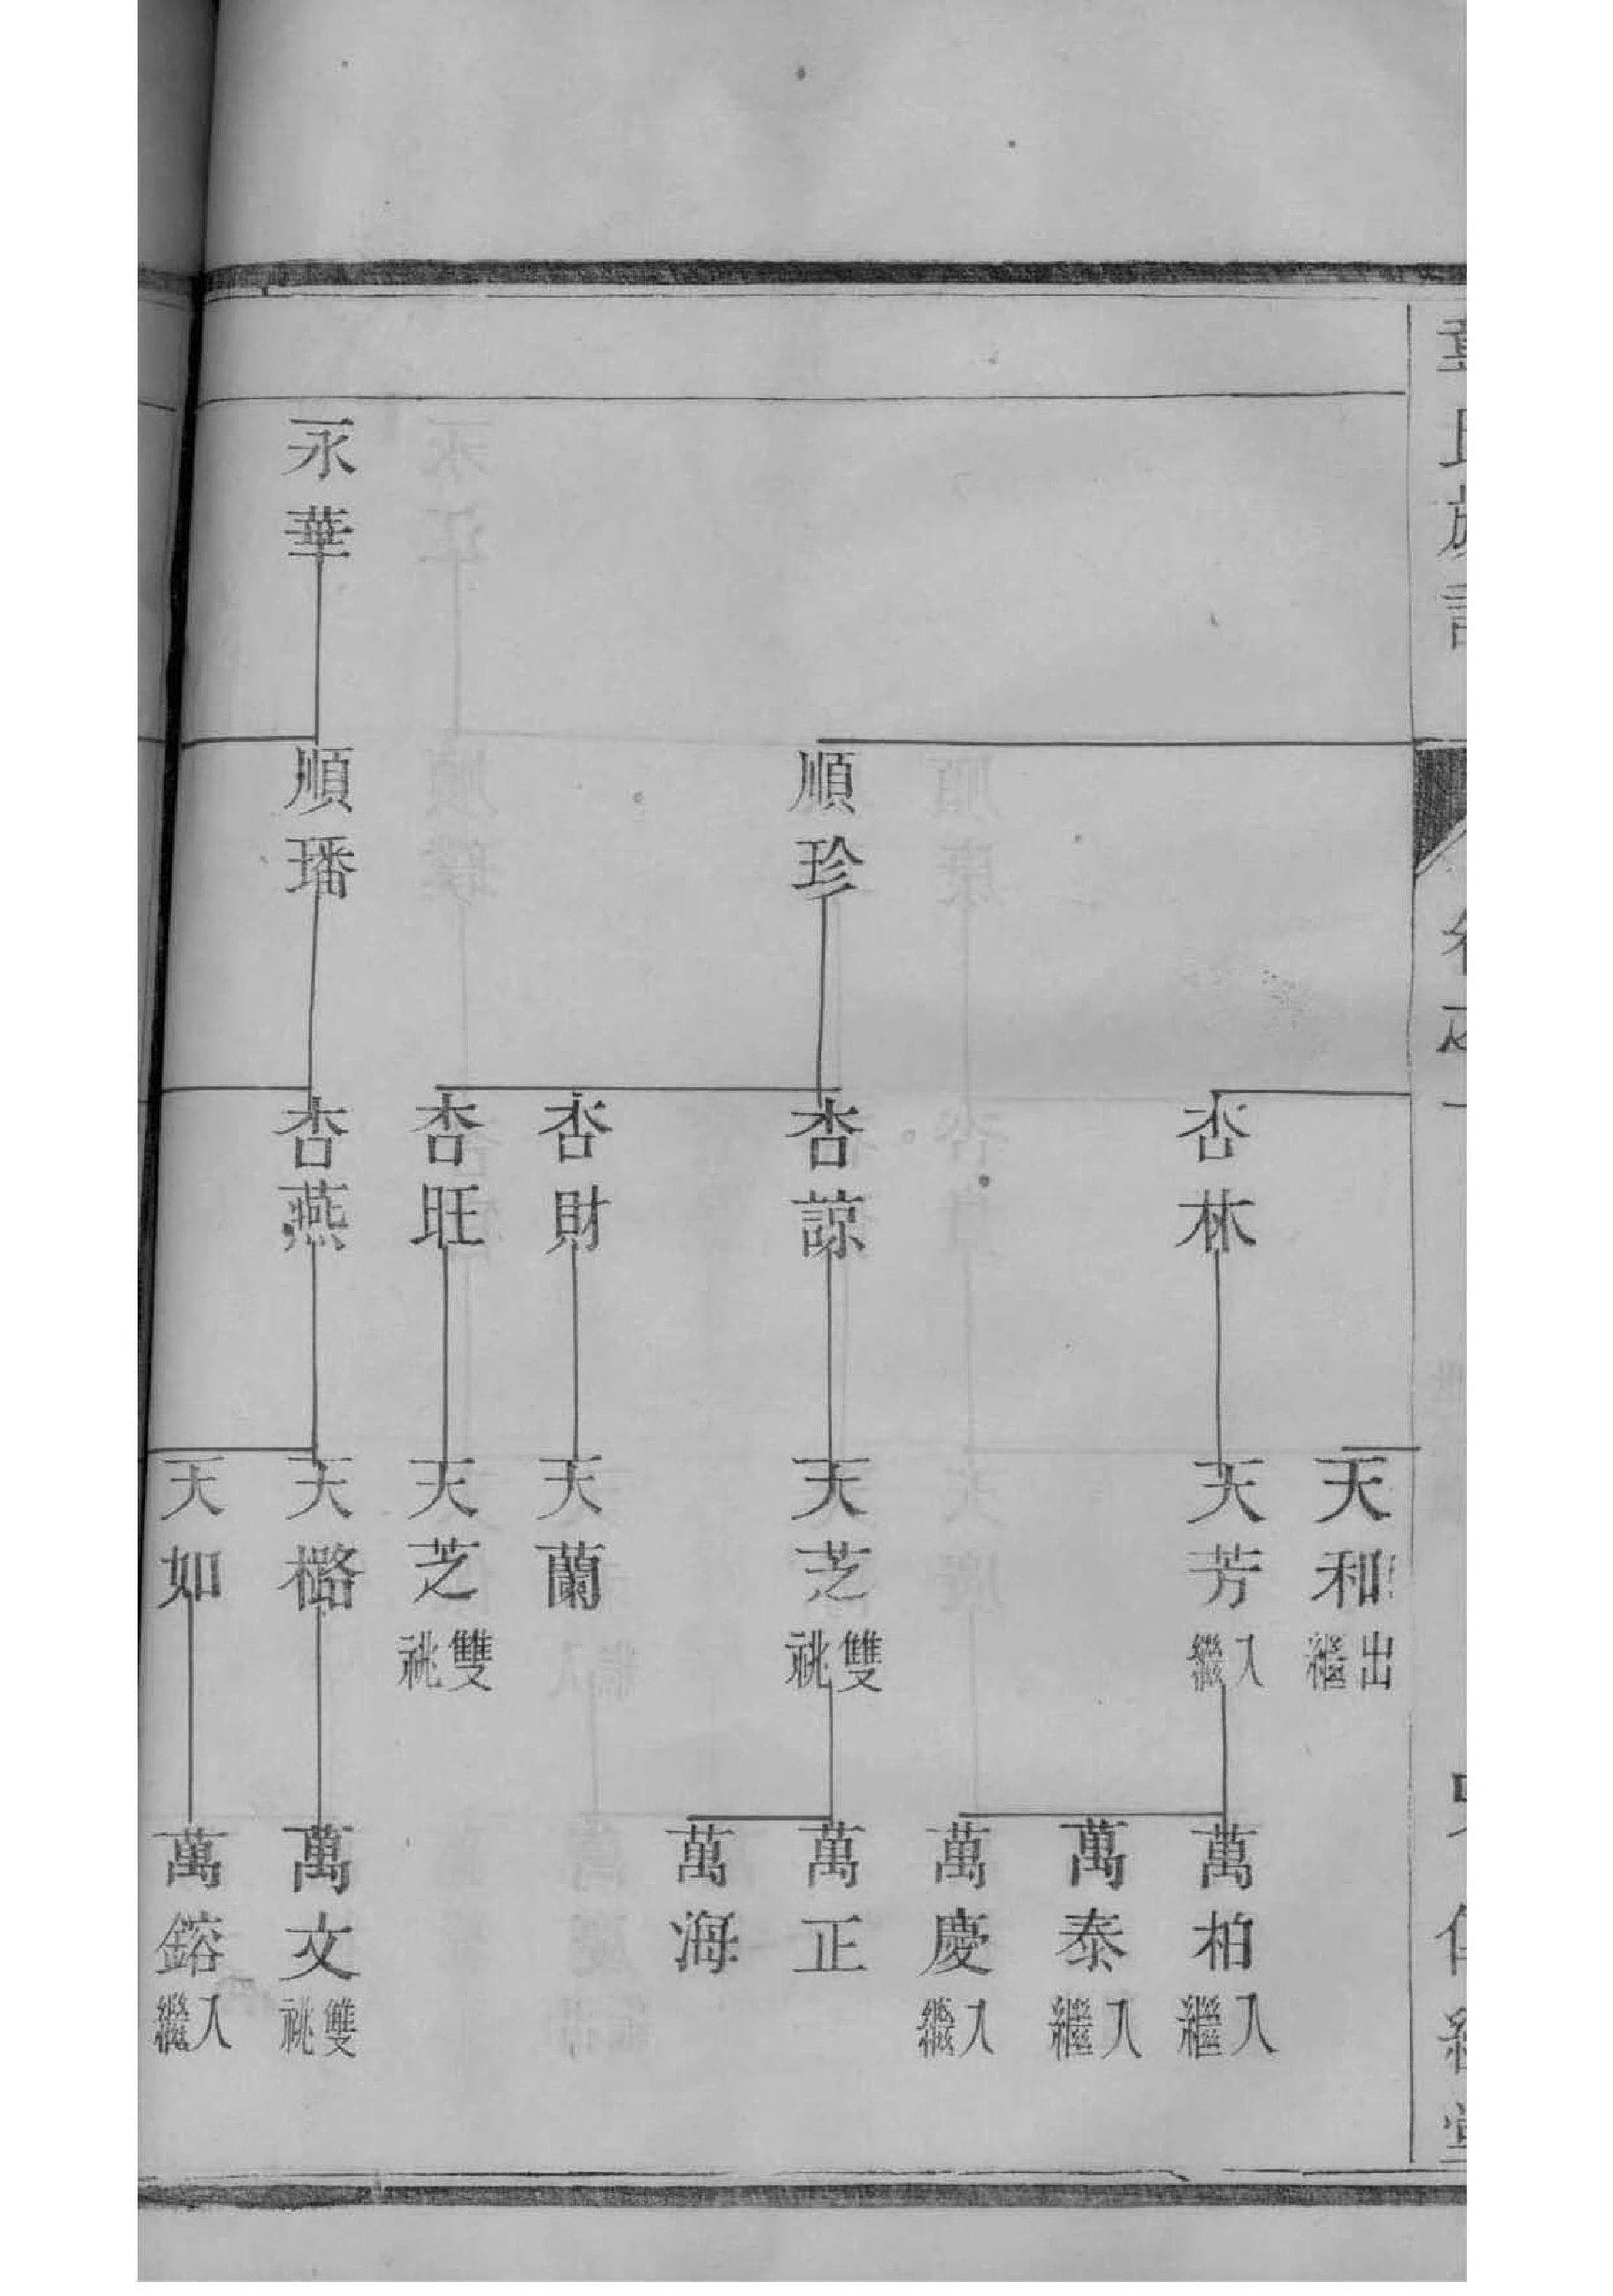 天和
出繼
杏林
天芳
入繼
萬柏
入繼
萬泰
入繼
萬慶
入繼
順珍
杏諒
天芝
雙祧
萬正
萬海
杏財
天蘭
杏旺
天芝
雙祧
永華
順璠
杏燕
天㯝
萬文
雙祧
天如
萬鎔
入繼